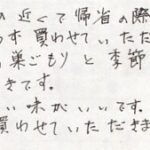 の近くて帰省の際
らず買わせていただ
の巣ごもりと季節
きです。
い味がいいです。
買わせていただきま